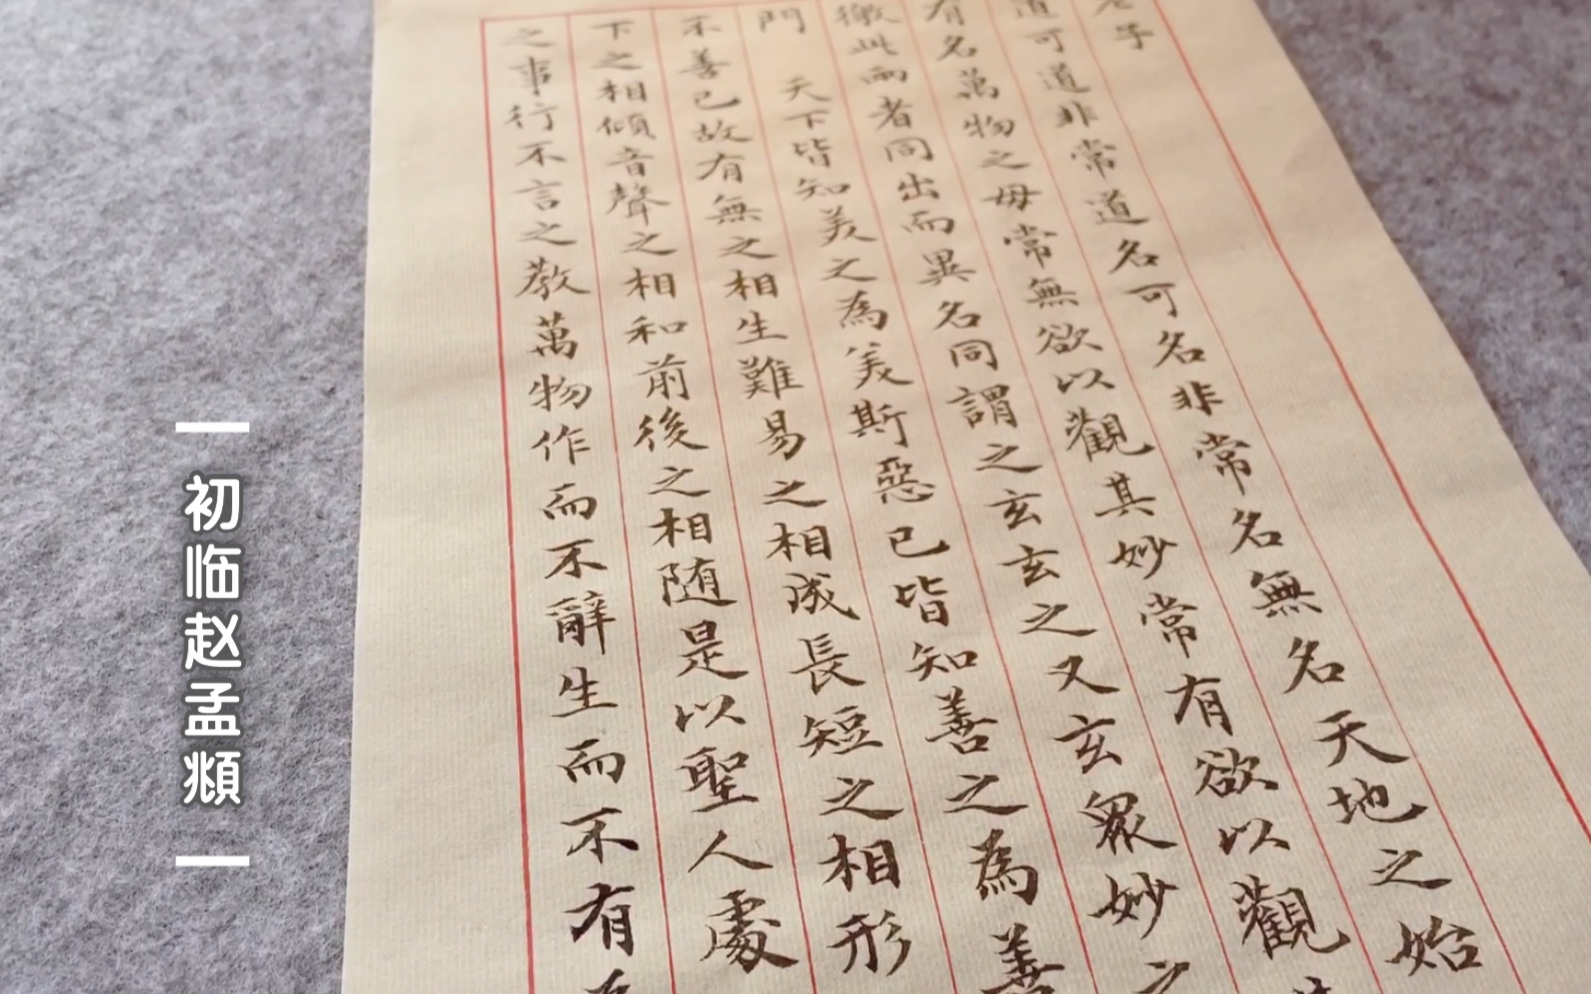 老子
道可道非常道名可名非常名無名天地之始
有名萬物之母常無欲以觀其妙常有欲以觀
徼此兩者同出而異名同謂之玄玄之又玄眾妙之
門 天下皆知美之為美斯惡已皆知善之為善
不善已故有無之相生難易之相成長短之相形
下之相傾音聲之相和前後之相随是以聖人處
之事行不言之教萬物作而不辭生而不有
初临赵孟頫